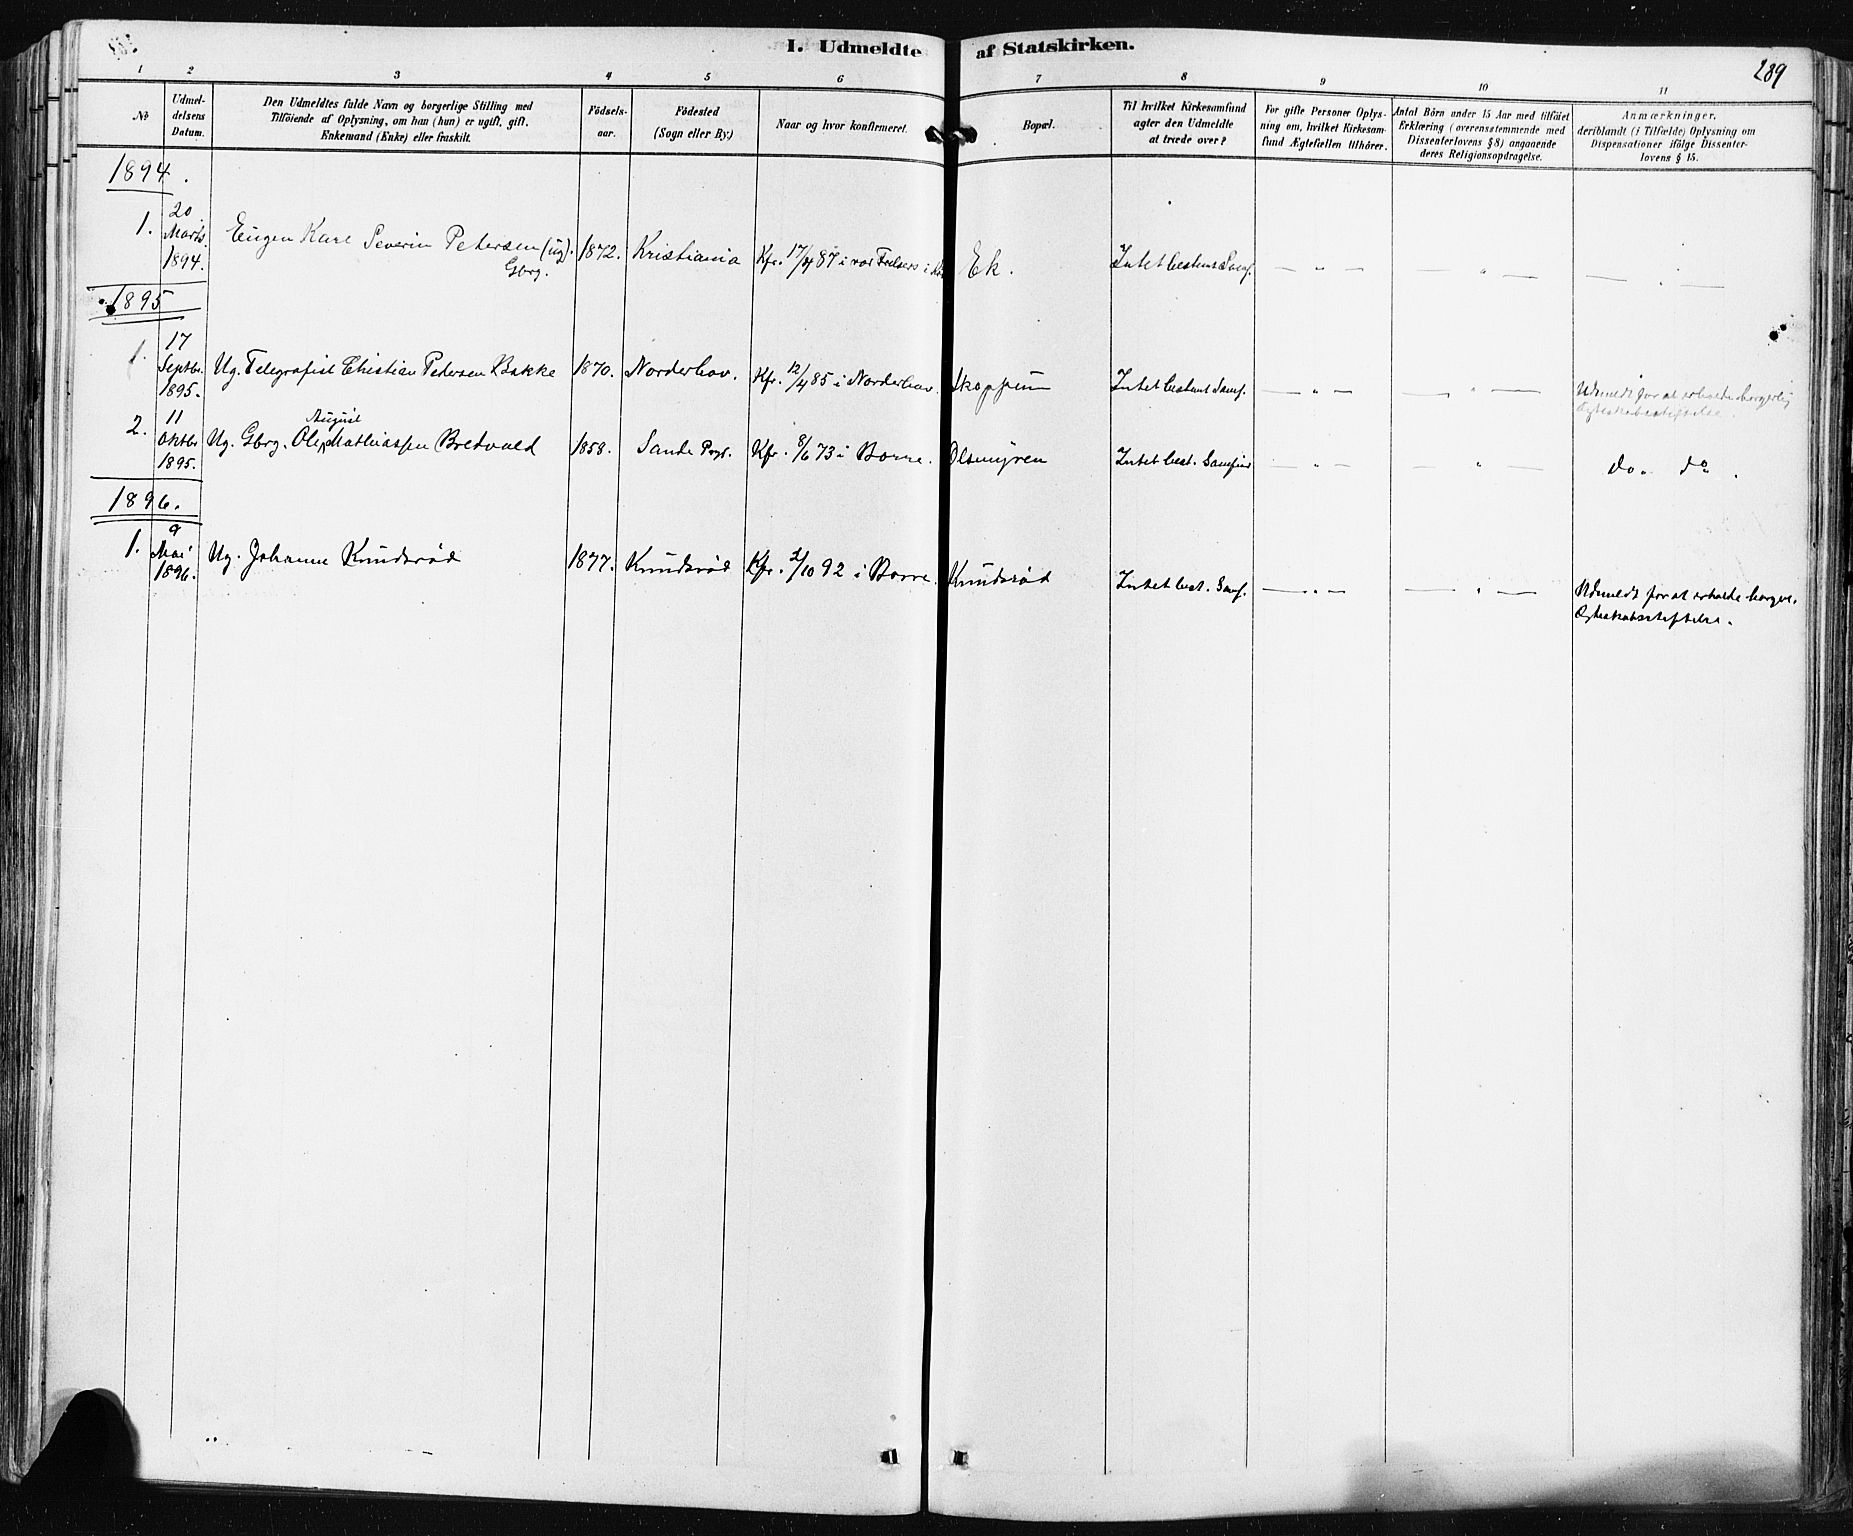 I. Udmeldte af Statskirken.
289
1 2 3 4 5 6 7 8 9 10 11
No
Udmel-
delsens
Datum.
Den Udmeldtes fulde Navn og borgerlige Stilling med
Tilföiende af Oplysning, om han (hun) er ugift, gift,
Enkemand (Enke) eller fraskilt.
Födsels-
aar.
Födested
(Sogn eller By.)
Naar og hvor konfirmeret.
Bopæl.
Til hvilket Kirkesamfund
agter den Udmeldte
at træde over?
For gifte Personer Oplys-
ning om, hvilket Kirkesam-
fund Ægtefællen tilhörer.
Antal Börn under 15 Aar med tilföiet
Erklæring (overensstemmende med
Dissenterlovens § 8) angaaende
deres Religionsopdragelse.
Anmærkninger,
deriblandt (i Tilfælde) Oplysning om
Dispensationer ifölge Dissenter-
lovens § 15.
1894.
1.
20
Marts
1894.
Eugen Karl Severin Petersen (ug).
Gbrg.
1872.
Kristiania
Kfr. 17/4 87 i vor Frelsers i
Ek.
Intet bestemt Samf.
— " —
— " —
— " —
1895
1.
17
Septbr.
1895.
Ug. Telegrafist Christian Petersen Bakke
1870.
Norderhov.
Kfr. 12/4 85 i Norderhov.
Skoppum
Intet bestemt Samf.
— " —
— " —
Udmeldt for at erholde borgerlig
Ægteskabsstiftelse.
2.
11
Oktbr
1895.
August
Ug. Gbrg. Ole Mathiassen Bredvald
1858.
Sande Pgd.
Kfr. 8/6 73 i Borre.
Olsmyren
Intet best. Samfund
— " —
— " —
do. do.
1896.
1.
9
Mai
1896.
Ug. Johanne Knudsrød
1877.
Knudsrød
Kfr. 2/10 92 i Borre.
Knudsrød
Intet best. Samf.
— " —
— " —
Udmeldt for at erholde borgerl.
Ægteskabsstiftelse.